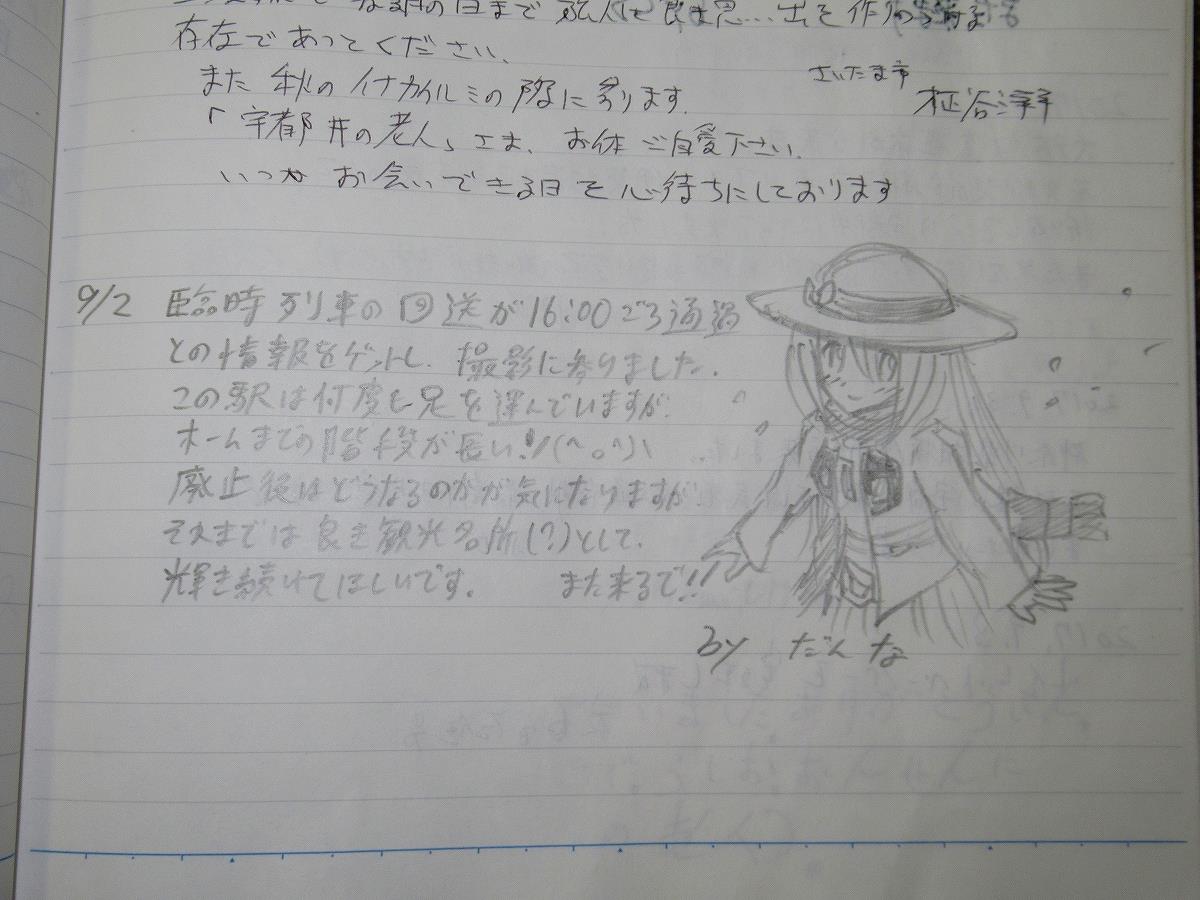 なる別の日まで 旅人に良き思…出を作り
存在であってください。
また 秋の イナカイルミの際に参ります。
さいたま市
「宇都井の老人」さま、お体ご自愛下さい。
いつか お会いできる日を心待ちにしております
9/2 臨時列車の回送が16:00ごろ通過
との情報をゲットし、撮影に参りました。
この駅は何度も足を運んでいますが、
ホームまでの階段が長い!\(^o^)\
廃止後はどうなるのかが気になりますが
それまでは良き観光名所(?)として、
輝き続けてほしいです。 また来るで!!
by だんな